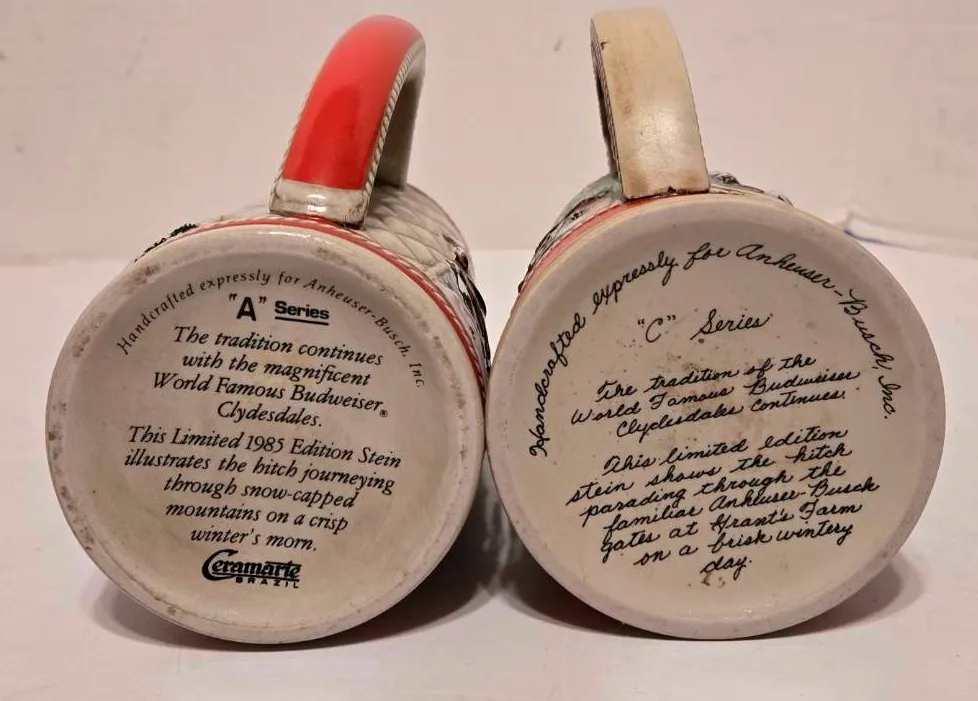 Handcrafted expressly for Anheuser-Busch, Inc.
"A" Series
The tradition continues
with the magnificent
World Famous Budweiser®
Clydesdales.
This Limited 1985 Edition Stein
illustrates the hitch journeying
through snow-capped
mountains on a crisp
winter's morn.
Ceramarte
BRAZIL
Handcrafted expressly for Anheuser-Busch, Inc.
"C" Series
The tradition of the
World Famous Budweiser
Clydesdales continues.
This limited edition
stein shows the hitch
parading through the
familiar Anheuser-Busch
gates at Grant's Farm
on a brisk wintery
day.